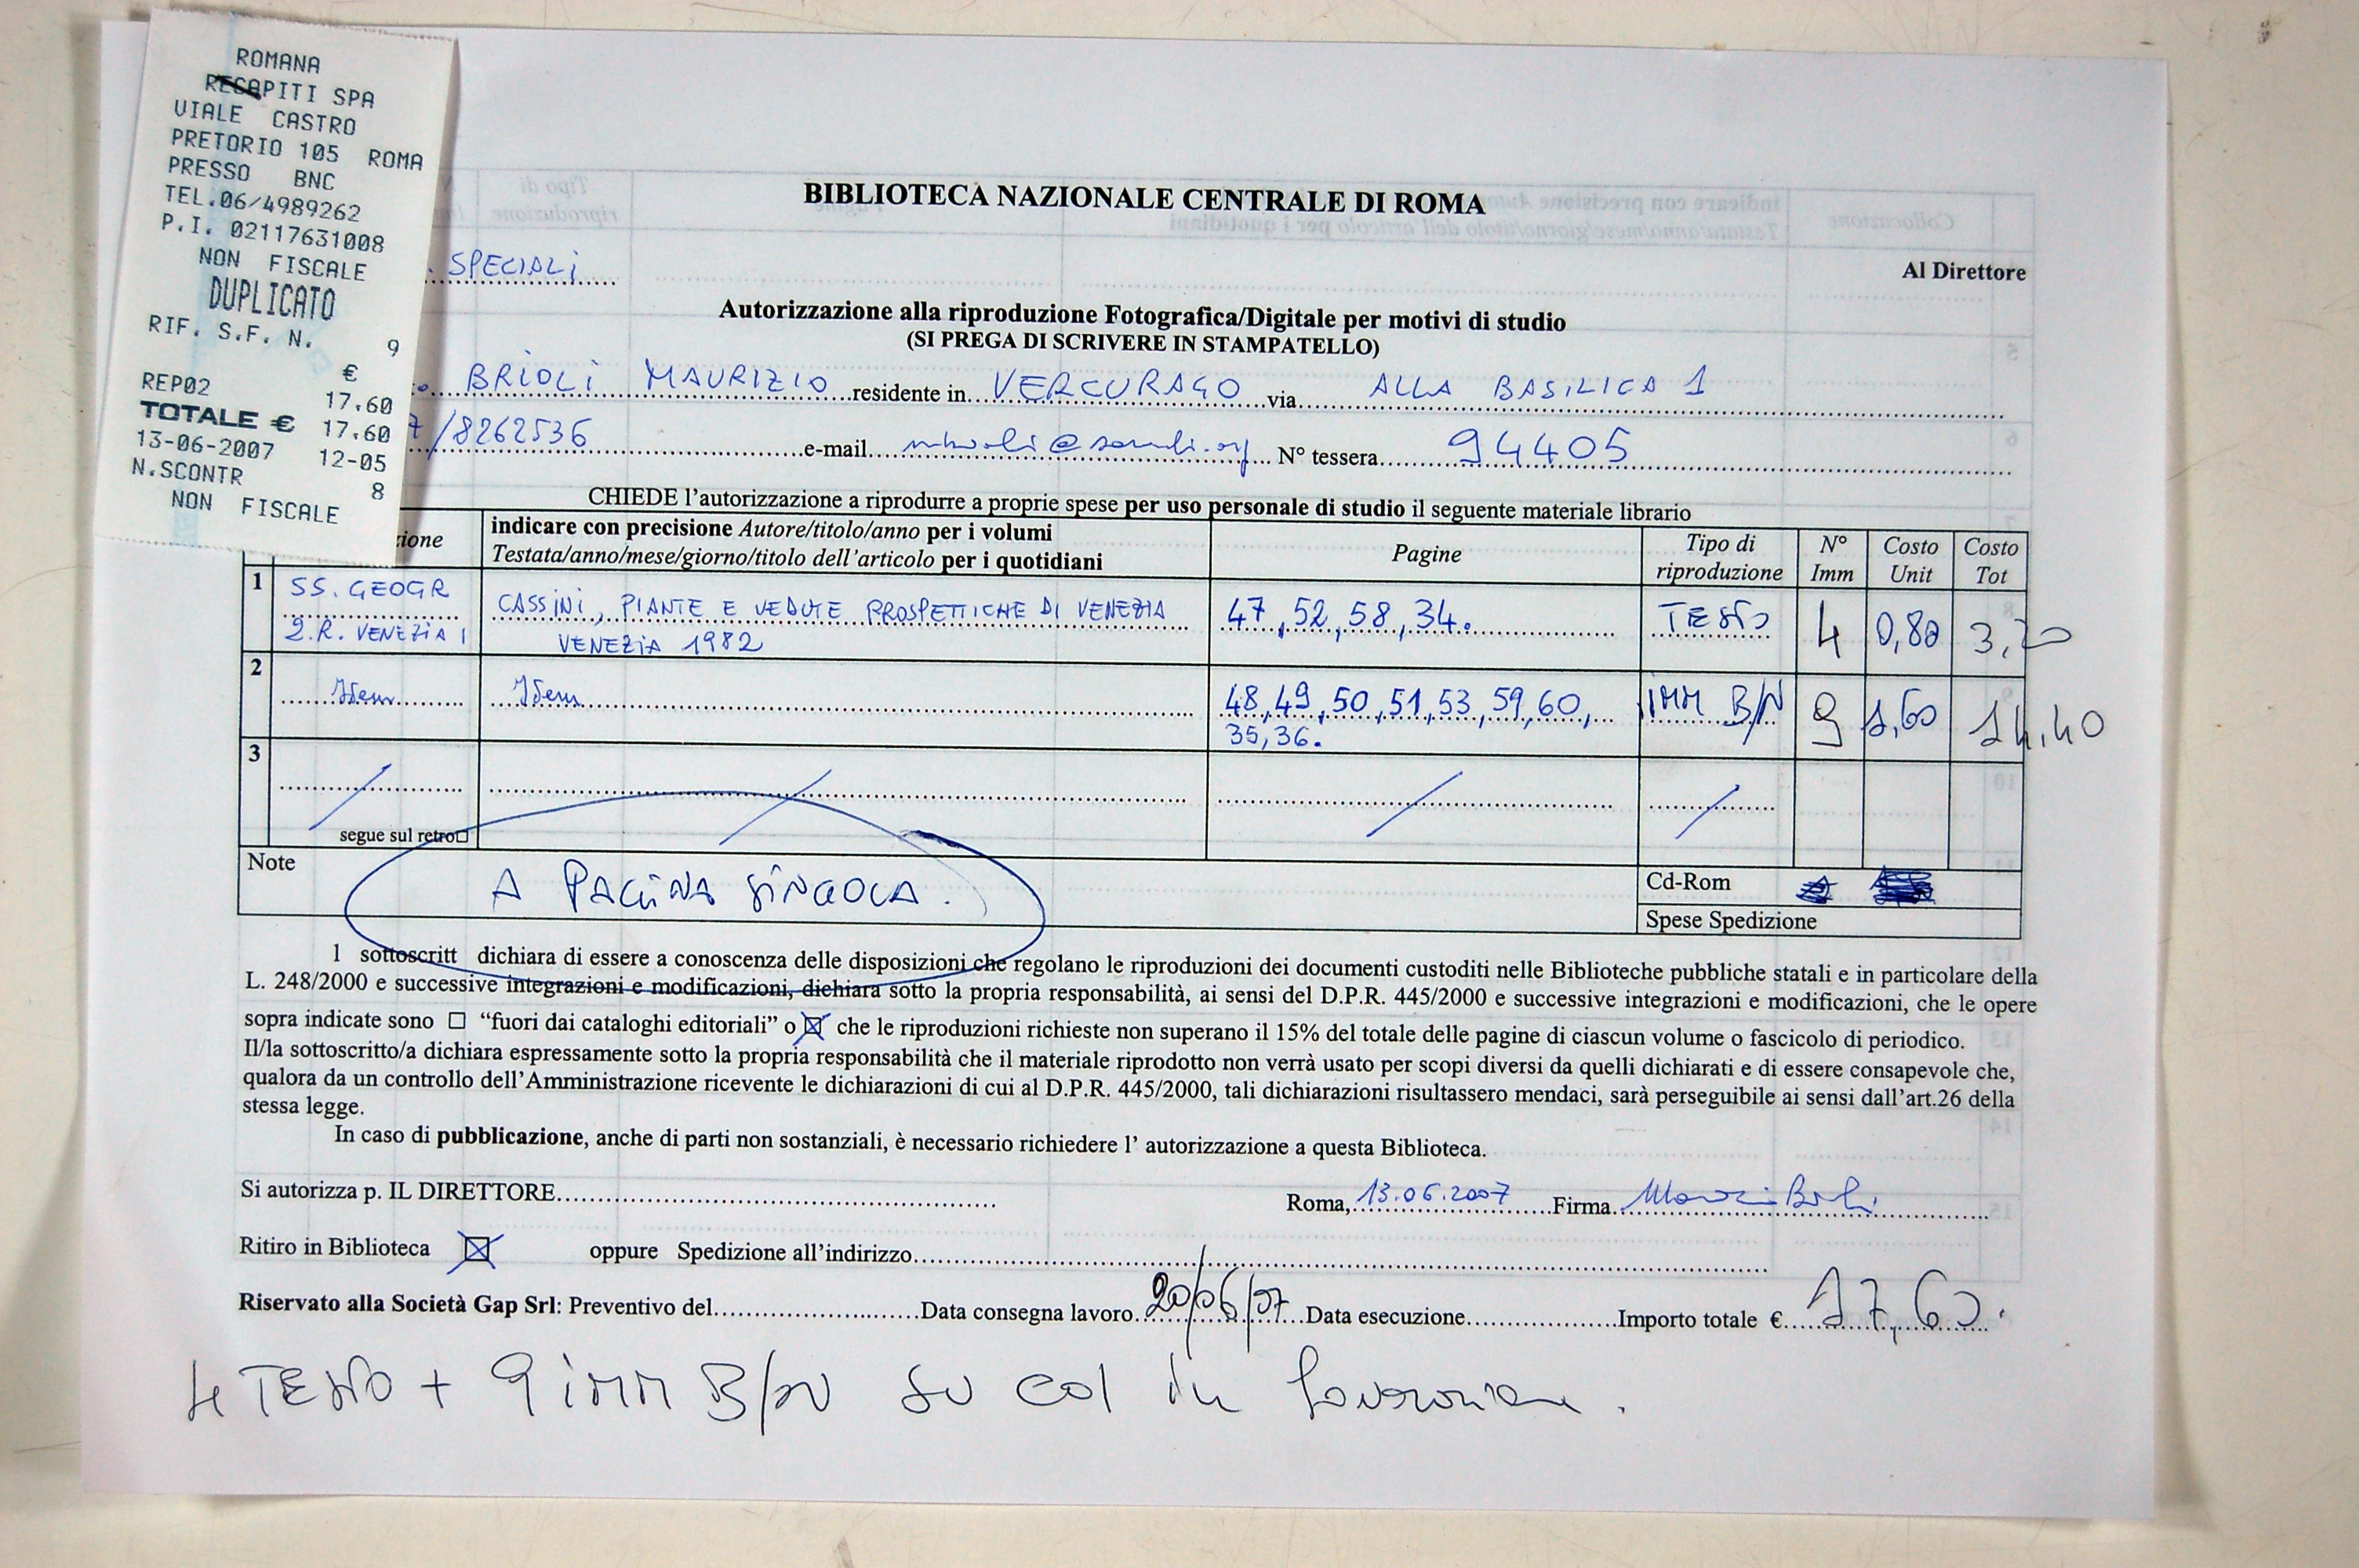 ROMANA
RECAPITI SPA
VIALE CASTRO
PRETORIO 105 ROMA
PRESSO BNC
TEL.06/4989262
P.I. 02117631008
NON FISCALE
DUPLICATO
RIF. S.F. N. 9
€
REP02 17.60
TOTALE € 17.60
13-06-2007 12-05
N.SCONTR 8
NON FISCALE
BIBLIOTECA NAZIONALE CENTRALE DI ROMA
. SPECIALI
Al Direttore
Autorizzazione alla riproduzione Fotografica/Digitale per motivi di studio
(SI PREGA DI SCRIVERE IN STAMPATELLO)
BRIOLI MAURIZIO residente in VERCURAGO via ALLA BASILICA 1
/8262536 e-mail N° tessera 94405
CHIEDE l'autorizzazione a riprodurre a proprie spese per uso personale di studio il seguente materiale librario
zione indicare con precisione Autore/titolo/anno per i volumi Pagine Tipo di N° Costo Costo
Testata/anno/mese/giorno/titolo dell'articolo per i quotidiani riproduzione Imm Unit Tot
1 SS. GEOGR CASSINI, PIANTE E VEDUTE PROSPETTICHE DI VENEZIA 47, 52, 58, 34. TESTO 4 0,80 3,20
2.R. VENEZIA 1 VENEZIA 1982
2 Idem Idem 48, 49, 50, 51, 53, 59, 60, IMM B/N 9 1,60 14,40
35, 36.
3
segue sul retro
Note A PAGINA SINGOLA. Cd-Rom
Spese Spedizione
l sottoscritt dichiara di essere a conoscenza delle disposizioni che regolano le riproduzioni dei documenti custoditi nelle Biblioteche pubbliche statali e in particolare della
L. 248/2000 e successive integrazioni e modificazioni, dichiara sotto la propria responsabilità, ai sensi del D.P.R. 445/2000 e successive integrazioni e modificazioni, che le opere
sopra indicate sono ☐ “fuori dai cataloghi editoriali” o ☒ che le riproduzioni richieste non superano il 15% del totale delle pagine di ciascun volume o fascicolo di periodico.
Il/la sottoscritto/a dichiara espressamente sotto la propria responsabilità che il materiale riprodotto non verrà usato per scopi diversi da quelli dichiarati e di essere consapevole che,
qualora da un controllo dell'Amministrazione ricevente le dichiarazioni di cui al D.P.R. 445/2000, tali dichiarazioni risultassero mendaci, sarà perseguibile ai sensi dall'art.26 della
stessa legge.
In caso di pubblicazione, anche di parti non sostanziali, è necessario richiedere l' autorizzazione a questa Biblioteca.
Si autorizza p. IL DIRETTORE Roma, 13.06.2007 Firma
Ritiro in Biblioteca ☒ oppure Spedizione all'indirizzo
Riservato alla Società Gap Srl: Preventivo del Data consegna lavoro 20/06/07 Data esecuzione Importo totale € 17,60.
4 TESTO + 9 IMM B/N SU